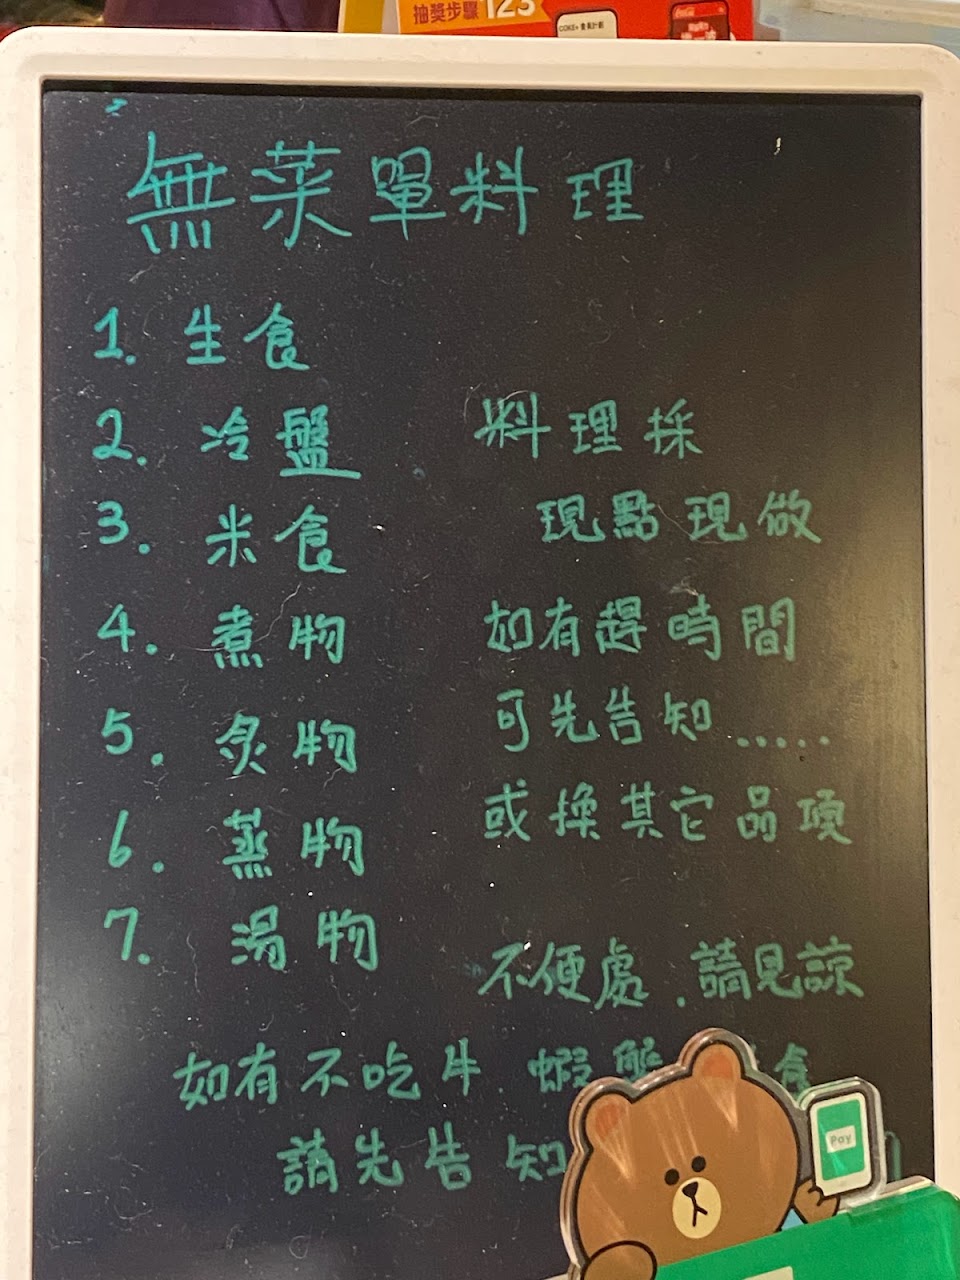 抽獎步驟 123
COKE+ 會員計劃
無菜單料理
1. 生食
2. 冷盤
3. 米食
4. 煮物
5. 炙物
6. 蒸物
7. 湯物
料理採
現點現做
如有趕時間
可先告知.....
或換其它品項
不便處.請見諒
如有不吃牛.蝦蟹 食
請先告知
Pay